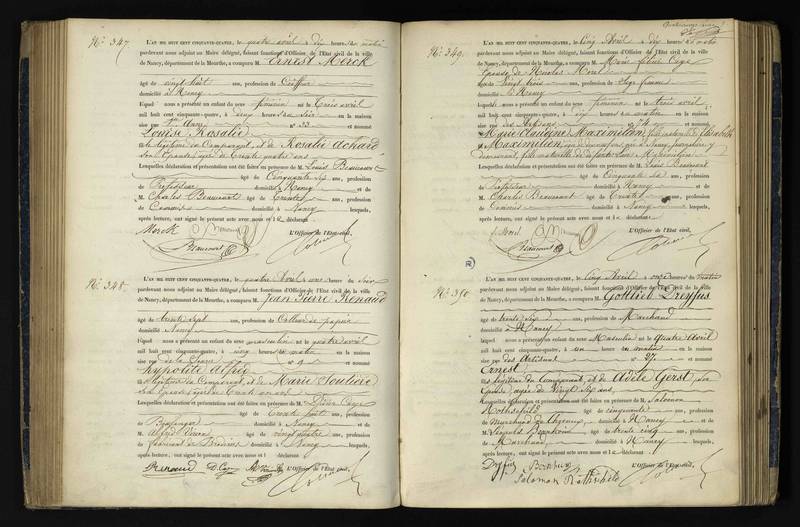 N° 347.
L'AN MIL HUIT CENT CINQUANTE-QUATRE, le quatre avril à dix heures du matin
pardevant nous adjoint au Maire délégué, faisant fonctions d'Officier de l'Etat civil de la ville
de Nancy, département de la Meurthe, a comparu M. Ernest Merck
âgé de vingt huit ans, profession de Coiffeur
domicilié à Nancy
lequel nous a présenté un enfant du sexe féminin né le trois avril
mil huit cent cinquante-quatre, à cinq heures du soir en la maison
sise rue Ste Anne n° 33 et nommé
Louise Rosalie
légitime du Comparant, et de Rosalie Achard
son épouse âgée de trente quatre ans
Lesquelles déclaration et présentation ont été faites en présence de M. Louis Beaucourt
âgé de Cinquante six ans, profession
de Professeur domicilié à Nancy et de
M. Charles Beaucourt âgé de trente ans, profession
de Commis domicilié à Nancy lesquels,
après lecture, ont signé le présent acte avec nous et le déclarant
Merck
Beaucourt
L'Officier de l'Etat civil,
N° 348.
L'AN MIL HUIT CENT CINQUANTE-QUATRE, le quatre Avril à une heure du soir
pardevant nous adjoint au Maire délégué, faisant fonctions d'Officier de l'Etat civil de la ville
de Nancy, département de la Meurthe, a comparu M. Jean Pierre Renaud
âgé de trente sept ans, profession de Colleur de papier
domicilié à Nancy
lequel nous a présenté un enfant du sexe masculin né le quatre avril
mil huit cent cinquante-quatre, à cinq heures du matin en la maison
sise rue de la n° 9 et nommé
hypolite Alfred
légitime du Comparant, et de Marie
son épouse âgée de trente un ans
Lesquelles déclaration et présentation ont été faites en présence de M. Didier Caye
âgé de Trente huit ans, profession
de Boulanger domicilié à Nancy et de
M. Alfred âgé de vingt quatre ans, profession
de domicilié à Nancy lesquels,
après lecture, ont signé le présent acte avec nous et le déclarant
Renaud D. Caye
L'Officier de l'Etat civil,
N° 349.
L'AN MIL HUIT CENT CINQUANTE-QUATRE, le Cinq Avril à dix heures du matin
pardevant nous adjoint au Maire délégué, faisant fonctions d'Officier de l'Etat civil de la ville
de Nancy, département de la Meurthe, a comparu M. Marie Caye
épouse de Nicolas Morel
âgé de vingt trois ans, profession de Sage femme
domicilié à Nancy
lequel nous a présenté un enfant du sexe féminin né le trois avril
mil huit cent cinquante-quatre, à dix heures du matin en la maison
sise rue des Artisans n° 74 et nommé
Marie Claudine Maximilien, fille naturelle de Elisabeth
Maximilien
demeurant, fille naturelle de Maximilien
Lesquelles déclaration et présentation ont été faites en présence de M. Louis Beaucourt
âgé de Cinquante six ans, profession
de Professeur domicilié à Nancy et de
M. Charles Beaucourt âgé de trente ans, profession
de Commis domicilié à Nancy lesquels,
après lecture, ont signé le présent acte avec nous et le déclarant
f. Morel
Beaucourt
L'Officier de l'Etat civil,
N° 350.
L'AN MIL HUIT CENT CINQUANTE-QUATRE, le Cinq Avril à onze heures du matin
pardevant nous adjoint au Maire délégué, faisant fonctions d'Officier de l'Etat civil de la ville
de Nancy, département de la Meurthe, a comparu M. Gottlieb Dreyfus
âgé de trente six ans, profession de Marchand
domicilié à Nancy
lequel nous a présenté un enfant du sexe Masculin né le Quatre Avril
mil huit cent cinquante-quatre, à un heures du matin en la maison
sise rue des Artisans n° 27 et nommé
Ernest
fils légitime du Comparant, et de Adèle Gerst, son
épouse âgée de Vingt six ans
Lesquelles déclaration et présentation ont été faites en présence de M. Salomon
Rothschild âgé de cinquante ans, profession
de Marchand de Chevaux domicilié à Nancy et de
M. Léopold Bernheim âgé de trente cinq ans, profession
de Marchand domicilié à Nancy lesquels,
après lecture, ont signé le présent acte avec nous et le déclarant
Dreyfus Bernheim
Salomon Rothschild
L'Officier de l'Etat civil,